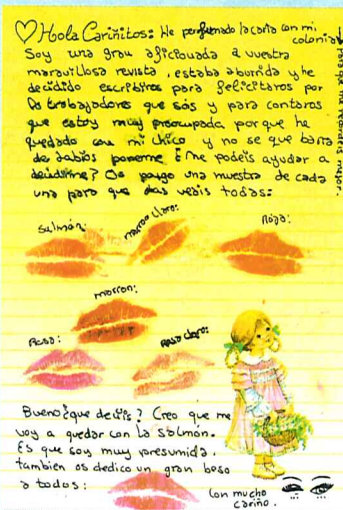 Hola Cariñitos: He perfumado la carta con mi
colonia para que me recordéis mejor.
Soy una gran aficionada a vuestra
maravillosa revista, estaba aburrida y he
decidido escribiros para felicitaros por
lo trabajadores que sois y para contaros
que estoy muy preocupada porque he
quedado con mi chico y no se que barra
de labios ponerme ¿me podeis ayudar a
decidirme? Os pongo una muestra de cada
una para que las veais todas:
Salmón:
marron claro:
Roja:
marron:
Rosa:
Rosa claro:
Bueno ¿que decis? Creo que me
voy a quedar con la salmón.
Es que soy muy presumida.
tambien os dedico un gran beso
a todos:
Con mucho
cariño.